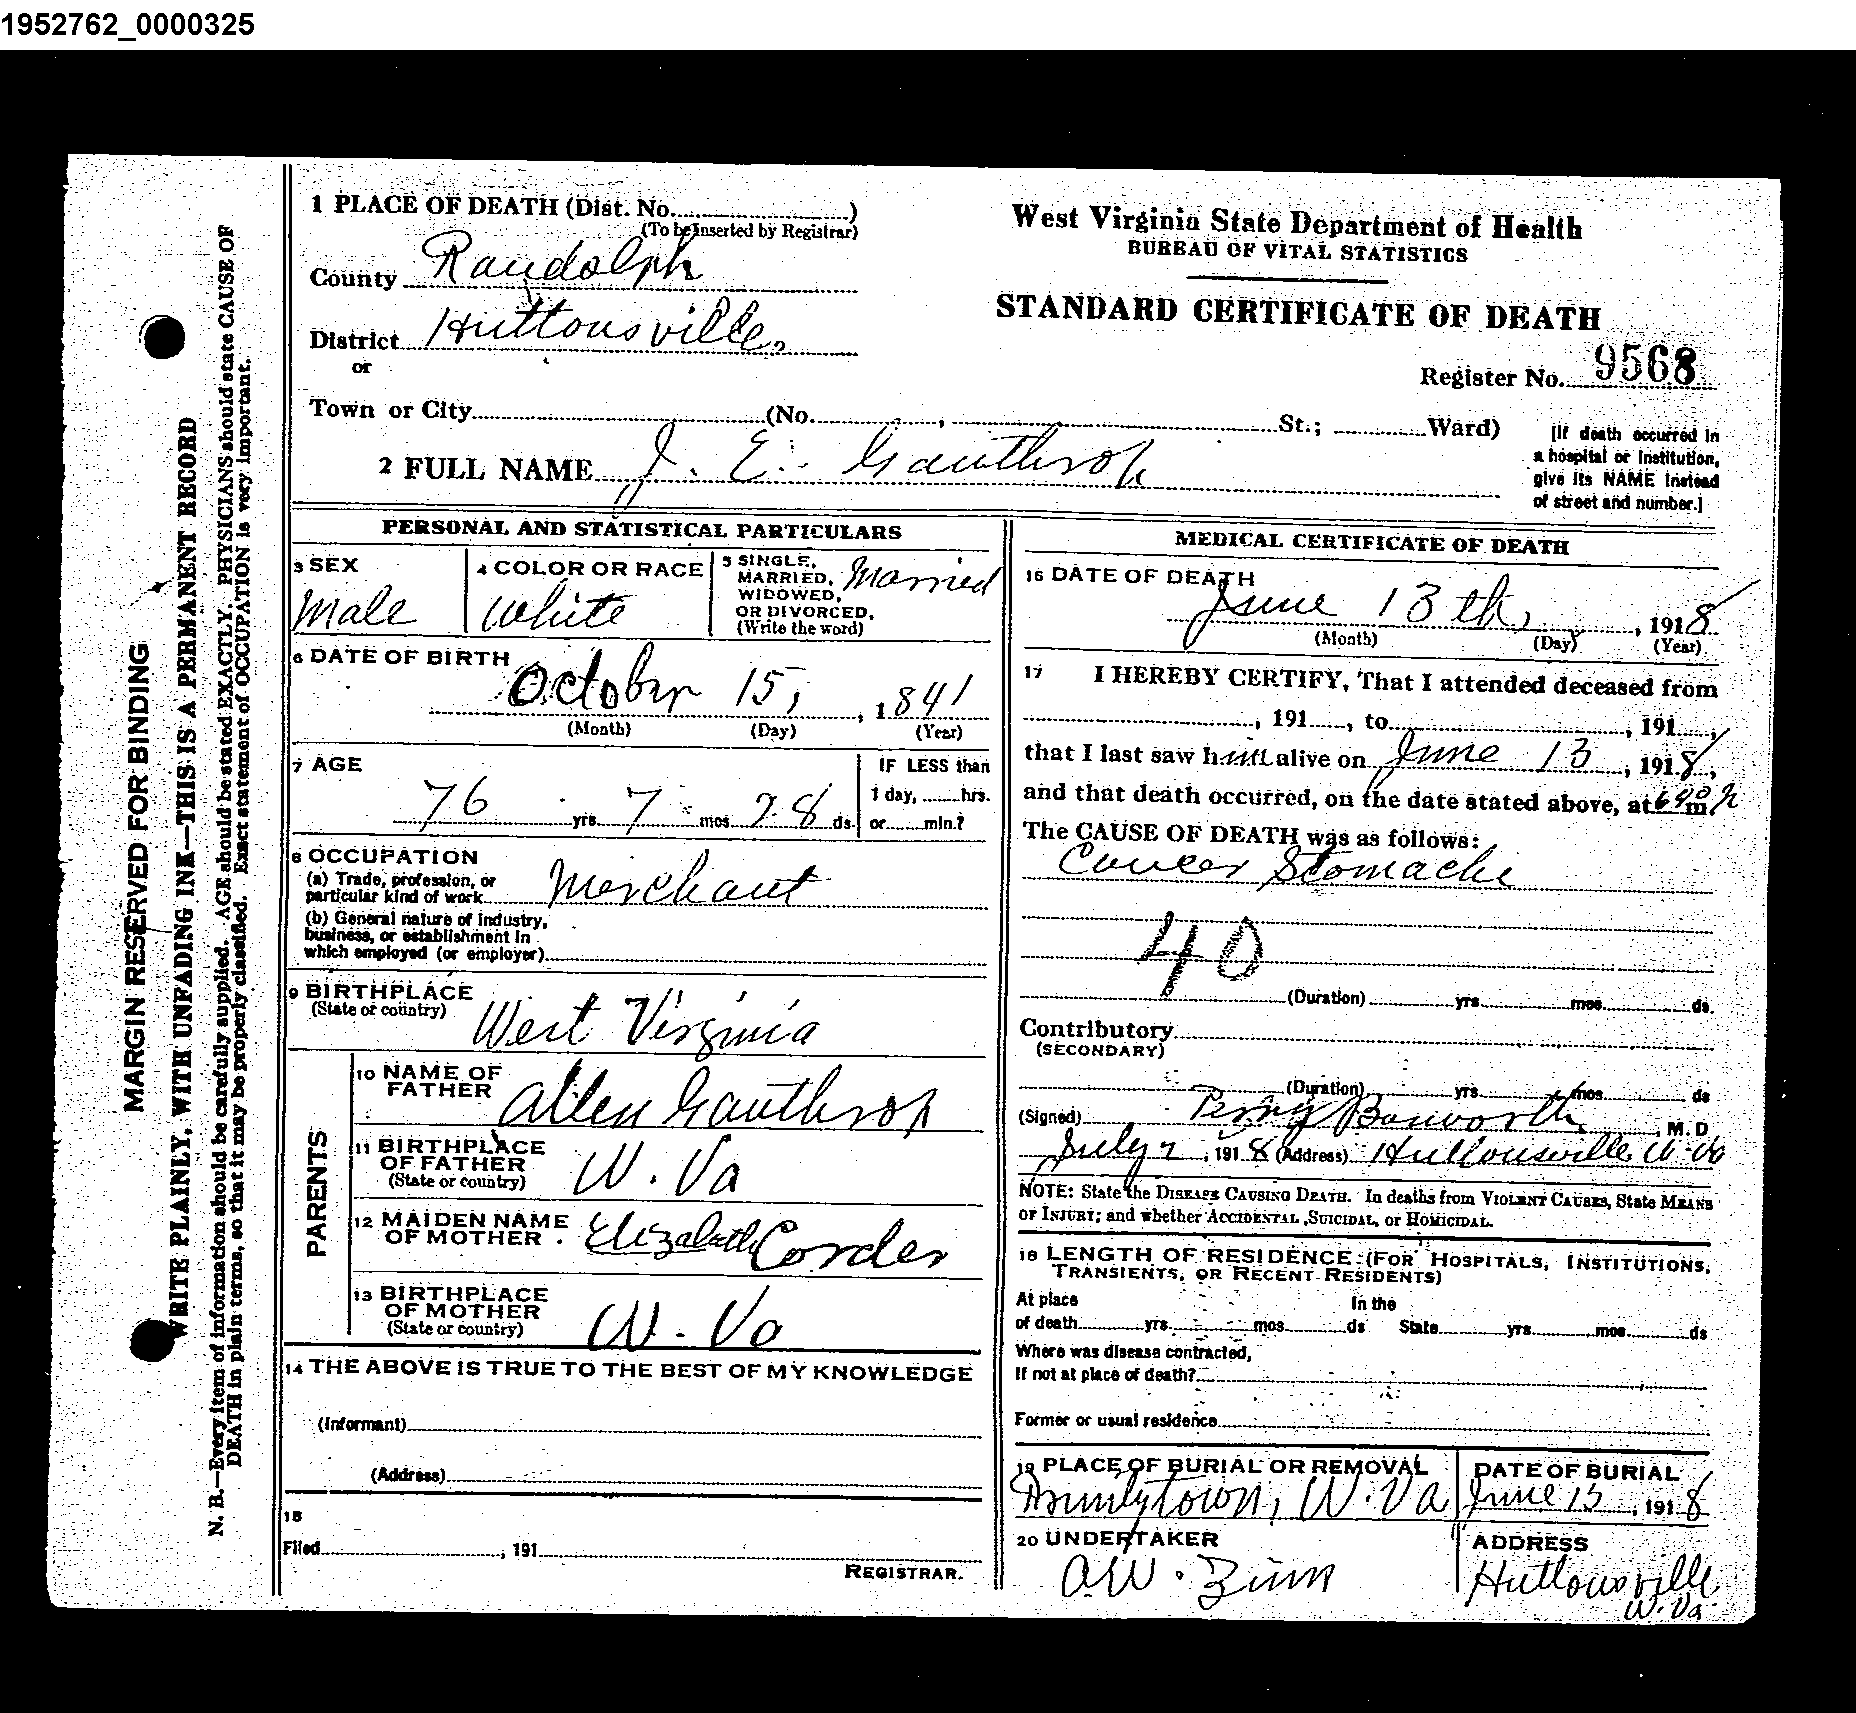 1952762_0000325
1 PLACE OF DEATH (Dist. No. )
(To be Inserted by Registrar)
County Randolph
District Huttonsville.
or
Town or City (No. , St.; Ward)
2 FULL NAME J. E. Gawthrop
West Virginia State Department of Health
BUREAU OF VITAL STATISTICS
STANDARD CERTIFICATE OF DEATH
Register No. 9568
[If death occurred in
a hospital or Institution,
give its NAME instead
of street and number.]
MARGIN RESERVED FOR BINDING
WRITE PLAINLY, WITH UNFADING INK—THIS IS A PERMANENT RECORD
N. B.—Every item of information should be carefully supplied. AGE should be stated EXACTLY. PHYSICIANS should state CAUSE OF
DEATH in plain terms, so that it may be properly classified. Exact statement of OCCUPATION is very important.
PERSONAL AND STATISTICAL PARTICULARS
3 SEX
Male
4 COLOR OR RACE
White
5 SINGLE,
MARRIED,
WIDOWED,
OR DIVORCED.
(Write the word)
Married
6 DATE OF BIRTH
October 15, , 1841
(Month) (Day) (Year)
7 AGE
76 yrs 7 mos 28 ds.
IF LESS than
1 day, hrs.
or min.?
8 OCCUPATION
(a) Trade, profession, or
particular kind of work Merchant
(b) General nature of industry,
business, or establishment in
which employed (or employer)
9 BIRTHPLACE
(State or country) West Virginia
PARENTS
10 NAME OF
FATHER Allen Gawthrop
11 BIRTHPLACE
OF FATHER
(State or country) W. Va
12 MAIDEN NAME
OF MOTHER . Elizabeth Corder
13 BIRTHPLACE
OF MOTHER
(State or country) W. Va
14 THE ABOVE IS TRUE TO THE BEST OF MY KNOWLEDGE
(Informant)
(Address)
15
Filed , 191
REGISTRAR.
MEDICAL CERTIFICATE OF DEATH
16 DATE OF DEATH
June 13th, , 1918
(Month) (Day) (Year)
17 I HEREBY CERTIFY, That I attended deceased from
, 191 , to , 191 ,
that I last saw him alive on June 13 , 1918,
and that death occurred, on the date stated above, at 640 m. P
The CAUSE OF DEATH was as follows:
Cancer Stomache
40
(Duration) yrs mos ds.
Contributory
(SECONDARY)
(Duration) yrs mos ds
(Signed) Perry Bosworth , M. D
July 2 , 1918 (Address) Huttonsville W. Va
NOTE: State the DISEASE CAUSING DEATH. In deaths from VIOLENT CAUSES, State MEANS
OF INJURY; and whether ACCIDENTAL ,SUICIDAL, or HOMICIDAL.
18 LENGTH OF RESIDENCE (FOR HOSPITALS, INSTITUTIONS,
TRANSIENTS, OR RECENT RESIDENTS)
At place In the
of death yrs. mos ds State yrs. mos ds
Where was disease contracted,
If not at place of death?
Former or usual residence
19 PLACE OF BURIAL OR REMOVAL
Pruntytown, W. Va
DATE OF BURIAL
June 15 , 1918
20 UNDERTAKER
A. W. Zinn
ADDRESS
Huttonsville
W. Va